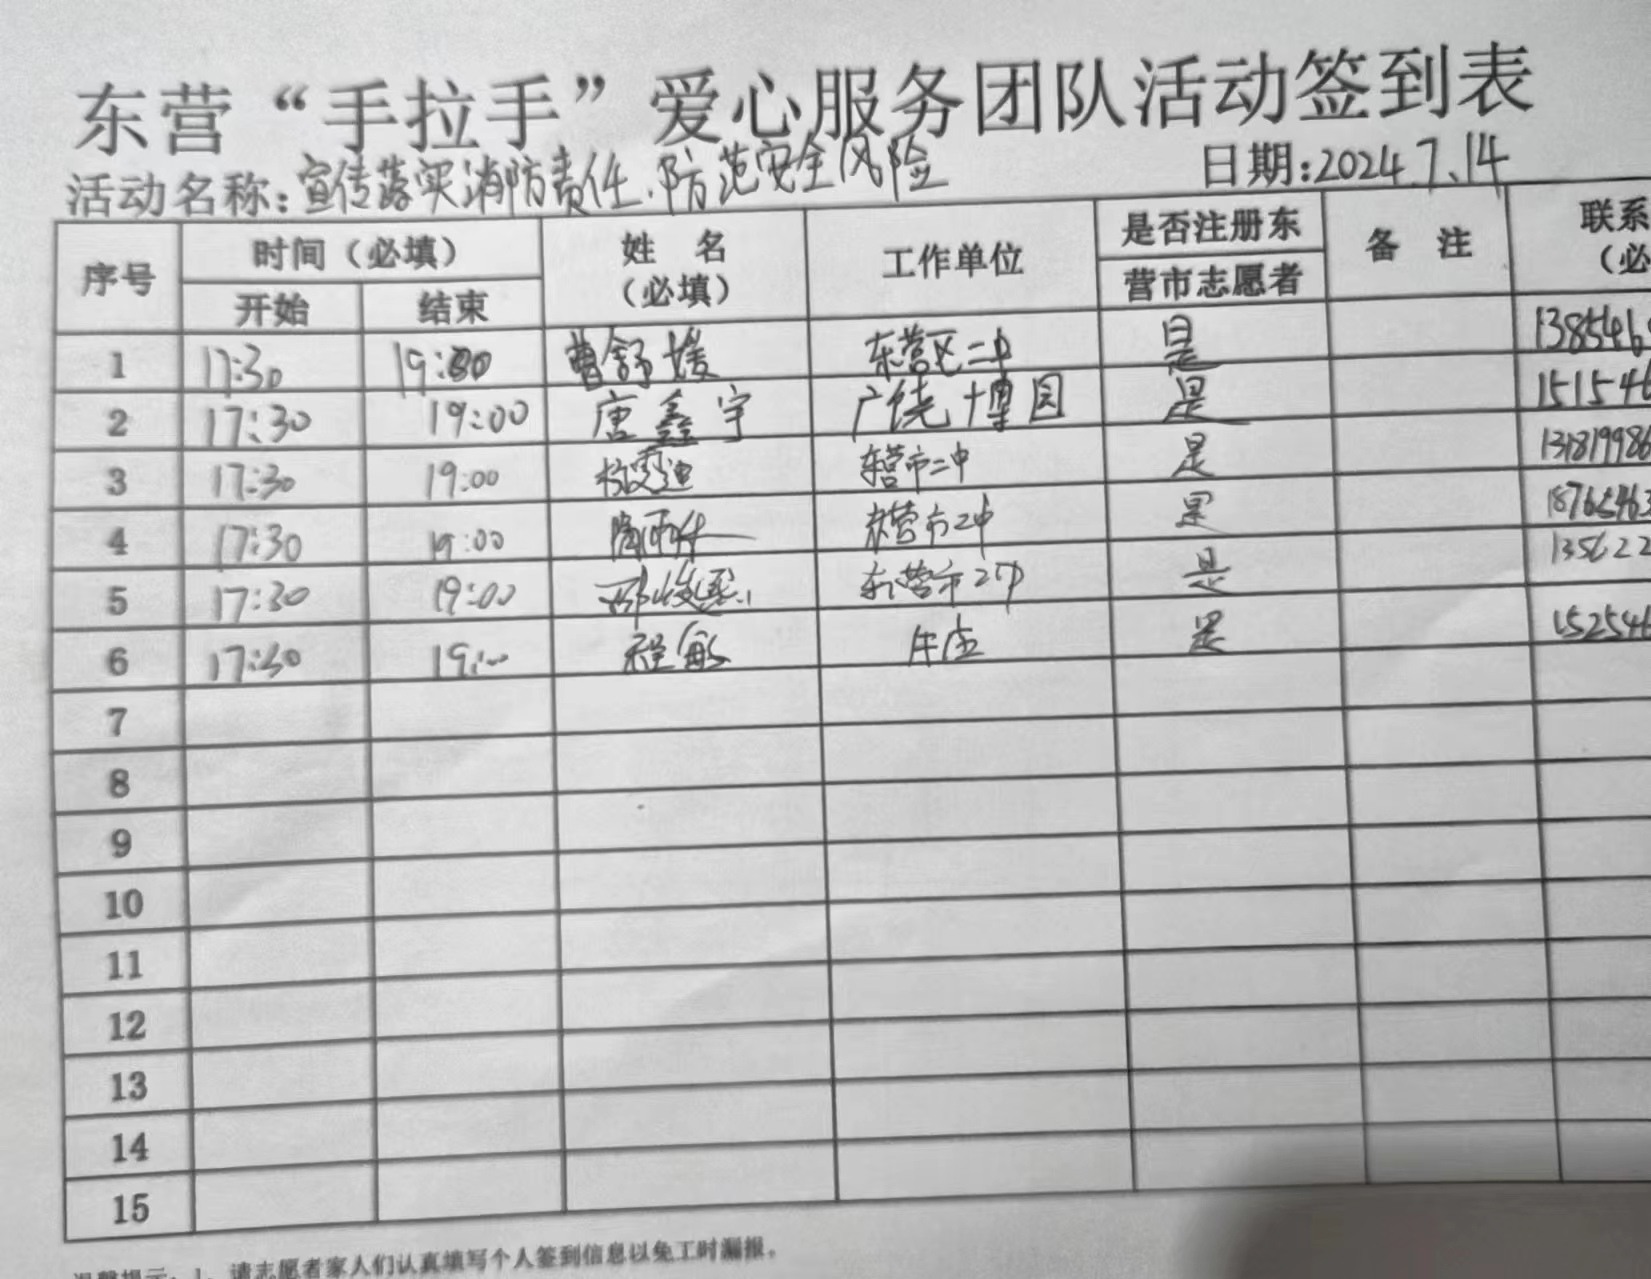 东营“手拉手”爱心服务团队活动签到表
活动名称:宣传落实消防责任、防范安全风险 日期:2024.7.14
序号 时间（必填） 姓 名（必填） 工作单位 是否注册东营市志愿者 备 注 联系（必
开始 结束
1 17:30 19:00 曹舒媛 东营区二中 是 138546
2 17:30 19:00 唐鑫宇 广饶博园 是 151546
3 17:30 19:00 东营市二中 是
4 17:30 19:00 东营市二中 是 18765463
5 17:30 19:00 东营市二中 是 135622
6 17:30 19:00 程敏 牛庄 是 152546
7
8
9
10
11
12
13
14
15
温馨提示：1、请志愿者家人们认真填写个人签到信息以免工时漏报。